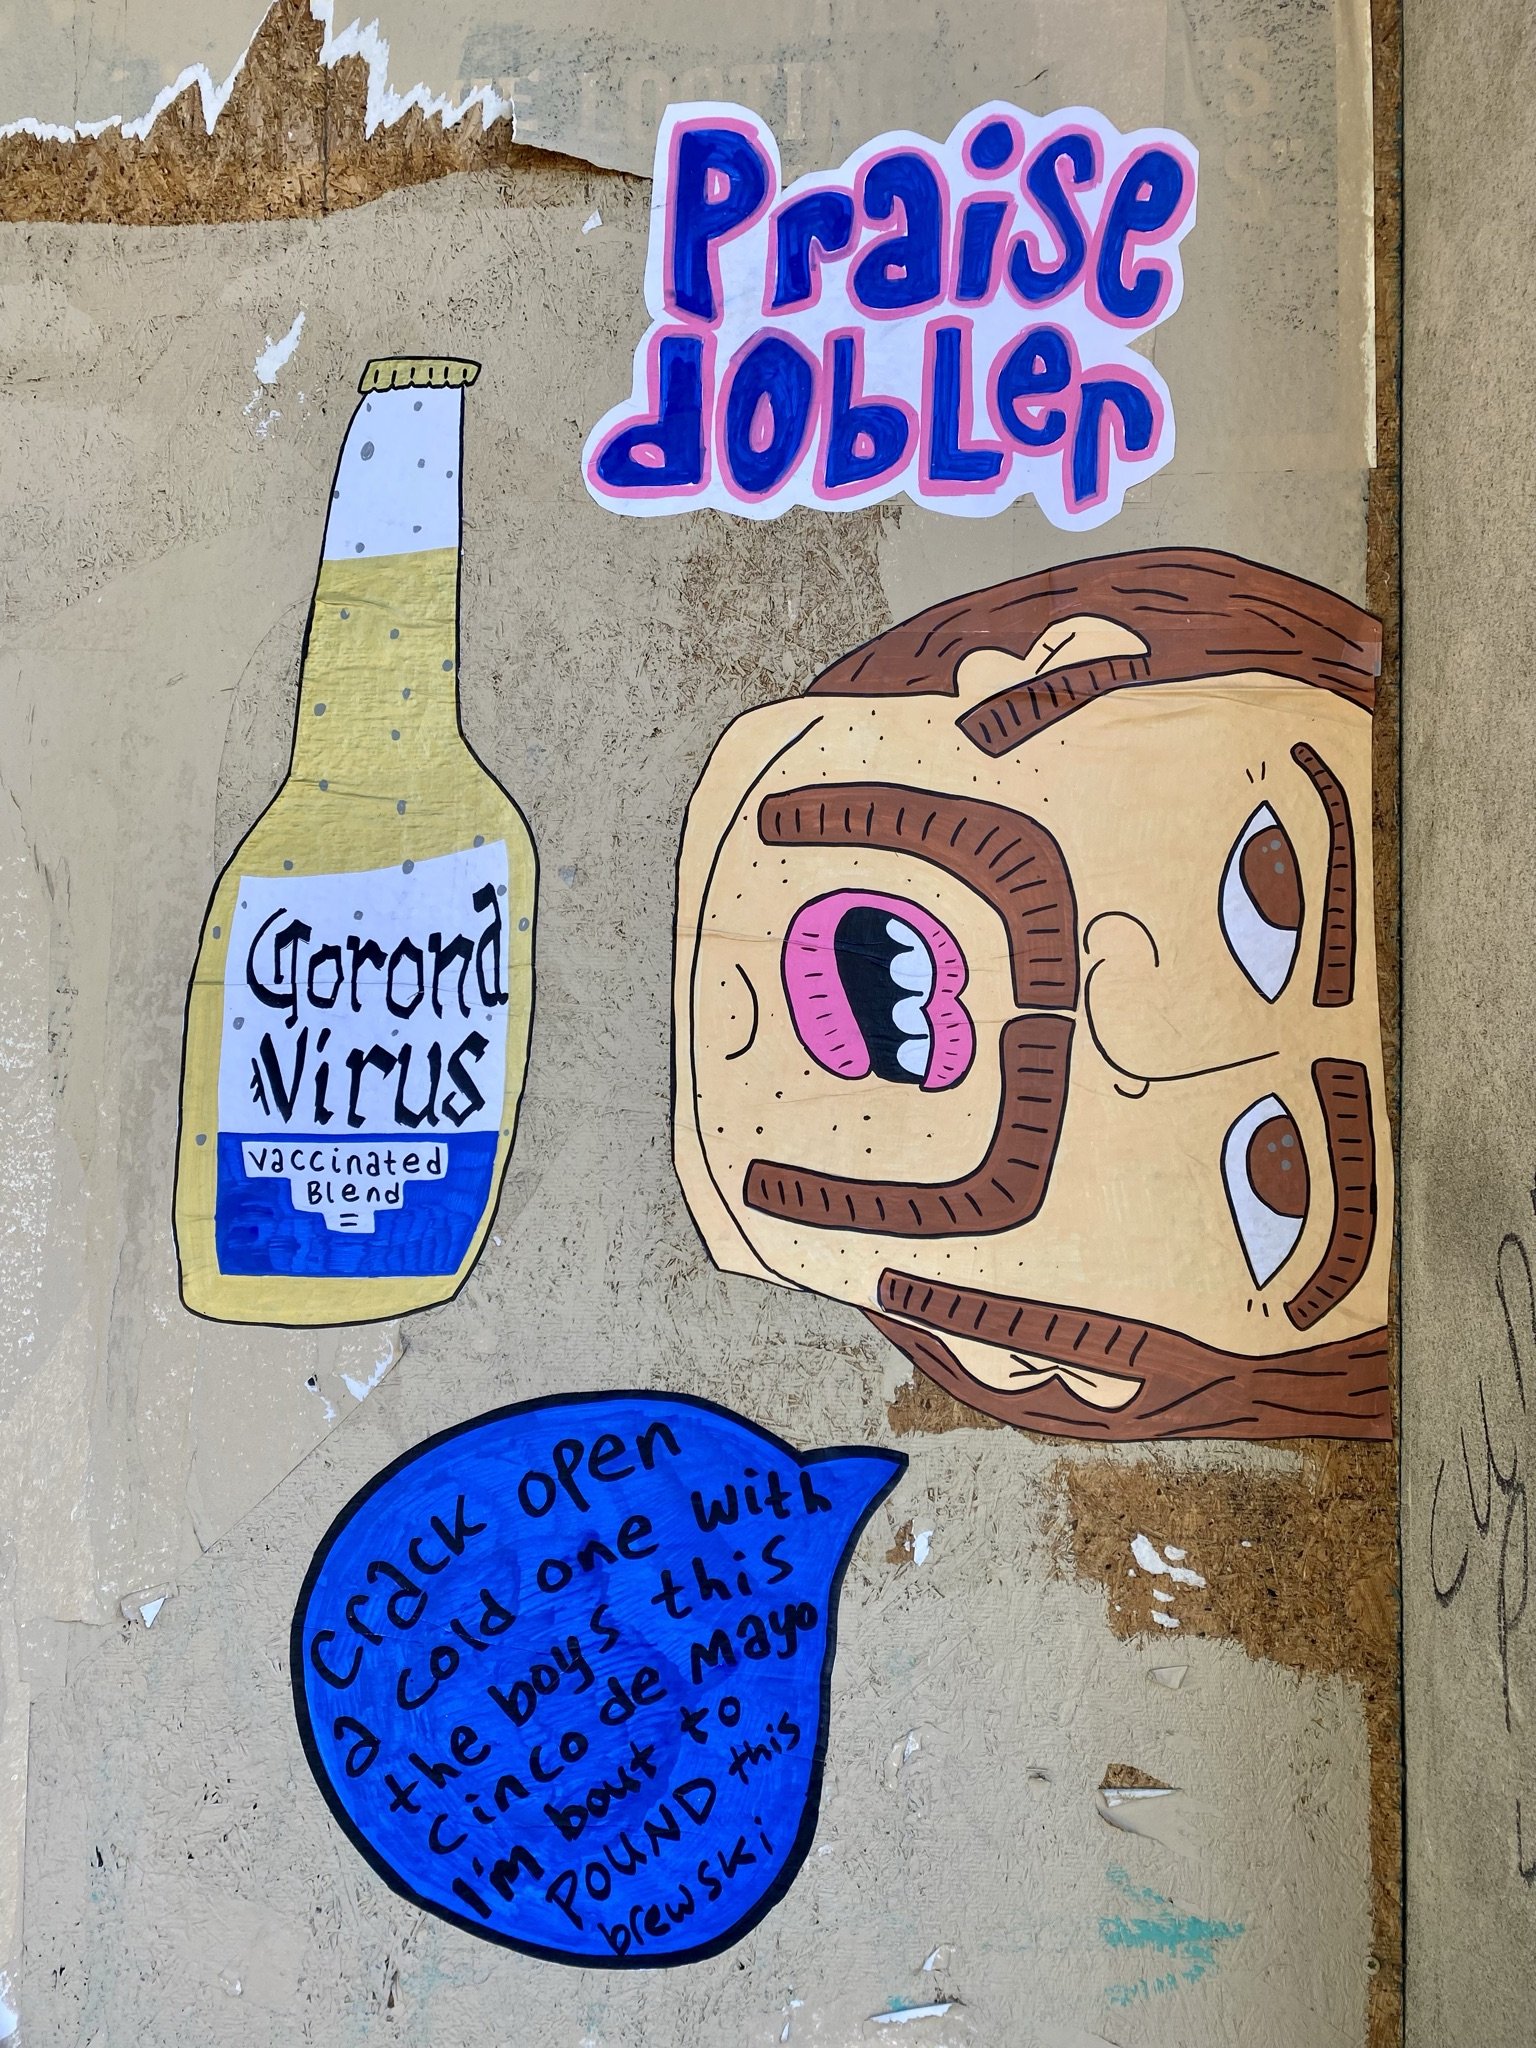 Praise
dobLer
Corona
Virus
vaccinated
Blend
Crack open
a cold one with
the boys this
cinco de Mayo
I'm bout to
POUND this
brewski